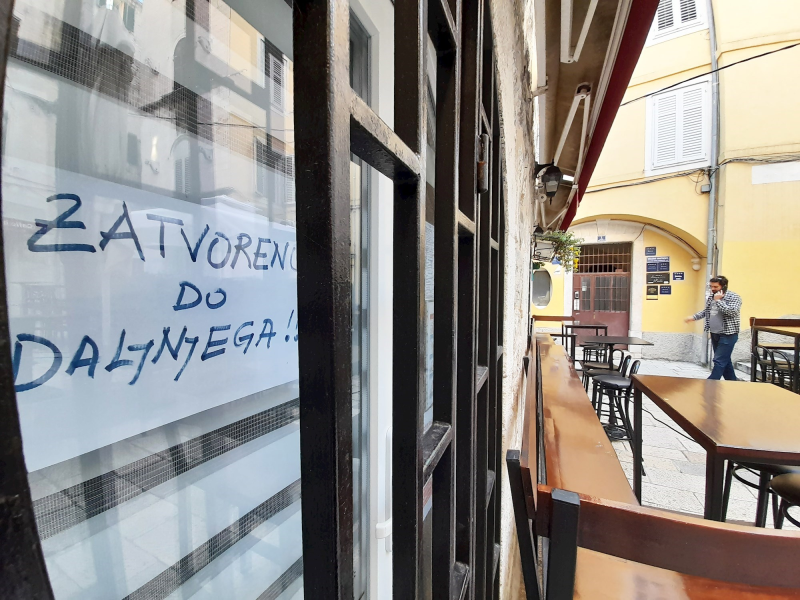 ZATVORENO
DO
DALJNJEGA!!